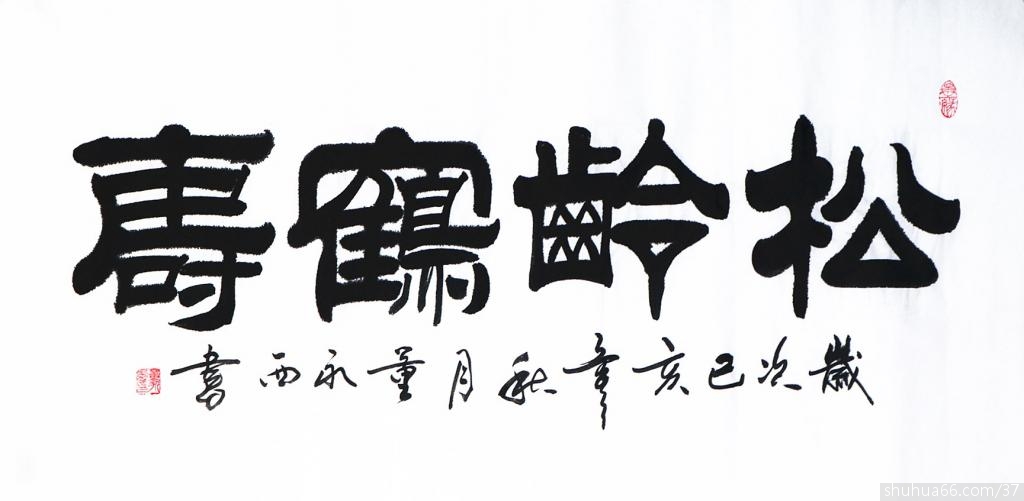 松齡鶴壽
歲次己亥年秋月董永西書
shuhua66.com/37